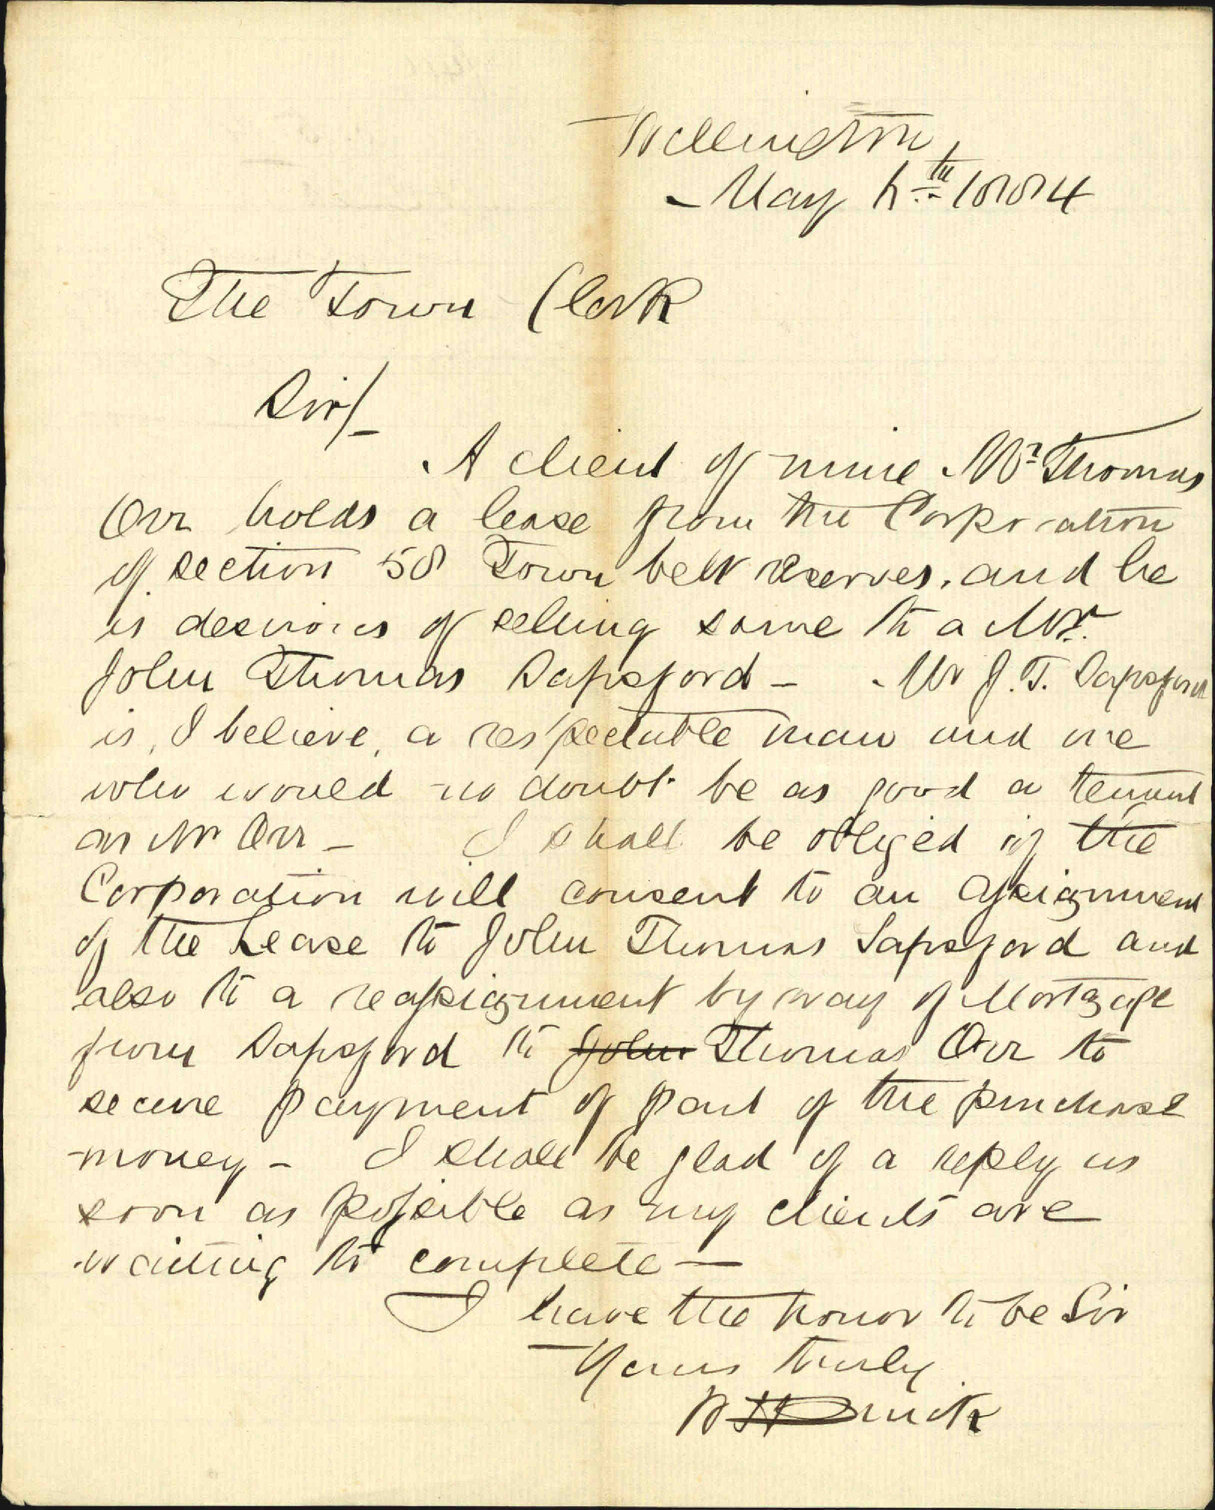 Wellington,
May 1884
The Town Clerk
Sir/-
A client of mine Mr Thomas
Orr holds a lease from the Corporation
of section 58 Town belt reserves, and he
is desirous of selling same to a Mr.
John Thomas Sapsford - Mr J. T. Sapsford
is, I believe, a respectable man and one
who would no doubt be as good a tenant
as Mr Orr - I shall be obliged if the
Corporation will consent to an assignment
of the Lease to John Thomas Sapsford and
also to a reassignment by way of Mortgage
from Sapsford to John Thomas Orr to
secure payment of part of the purchase
money - I shall be glad of a reply as
soon as possible as my clients are
waiting to complete -
I have the honor to be Sir
Yours truly